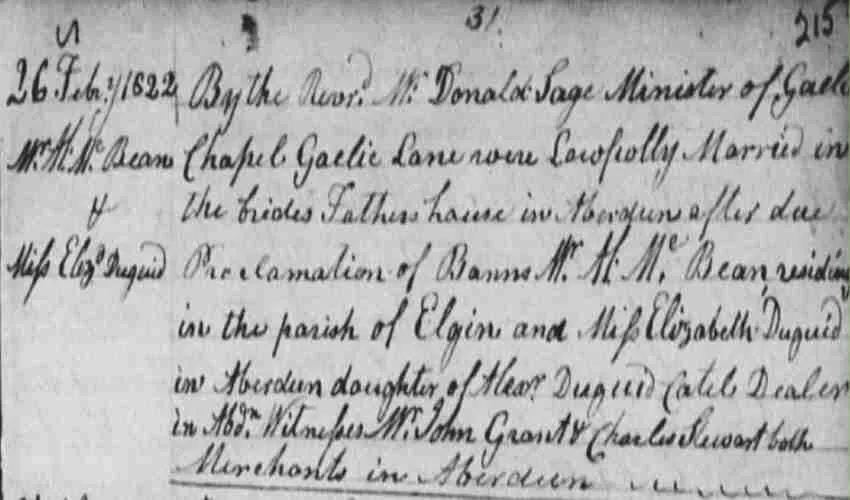 31
215
26 Febry 1822
Mr H Mc Bean
&
Miss Elizth Duguid
By the Revrd Mr Donald Sage Minister of Gaelic
Chapel Gaelic Lane were Lawfully Married in
the brides Fathers house in Aberdeen after due
Proclamation of Banns Mr H Mc Bean residing
in the parish of Elgin and Miss Elizabeth Duguid
in Aberdeen daughter of Alexr Duguid Catele Dealer
in Abdn Witnesses Mr John Grant & Charles Stewart both
Merchants in Aberdeen